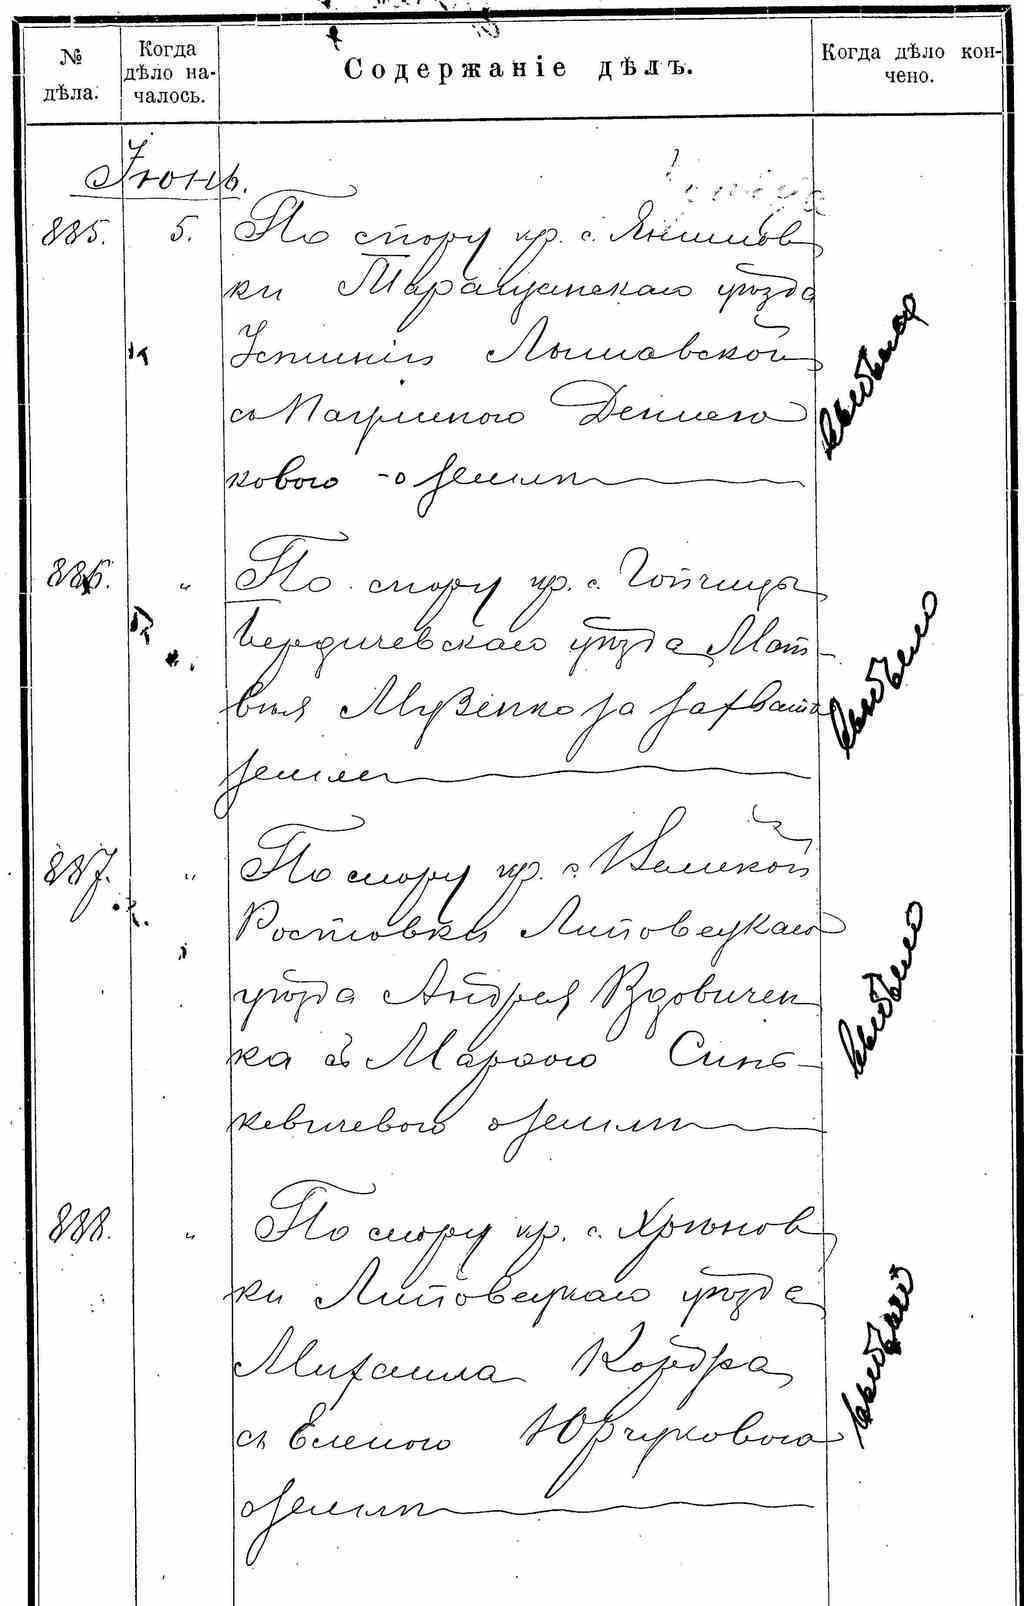 № дѣла.
Когда дѣло на-
чалось.
Содержаніе дѣлъ.
Когда дѣло кон-
чено.
Іюнь.
885. 5. По спору кр. с. Янишов
ки Таращанскаго уѣзда
Устиніи Лышавской
съ Патрикіемъ
ковою о землѣ
886. " По спору кр. с. Гопчицы
Бердичевскаго уѣзда Мат-
вѣя Музенко за захватъ
земли
887. " По спору кр. с. Великой
Ростовки Липовецкаго
уѣзда Андрея Вдовичен
ка съ Марѳою Синь-
кевичевою о землѣ
888. " По спору кр. с. Хрѣнов
ки Липовецкаго уѣзда
Михаила Кондра
съ Еленою Юрчуковою
о землѣ
выбыло
выбыло
выбыло
выбыло